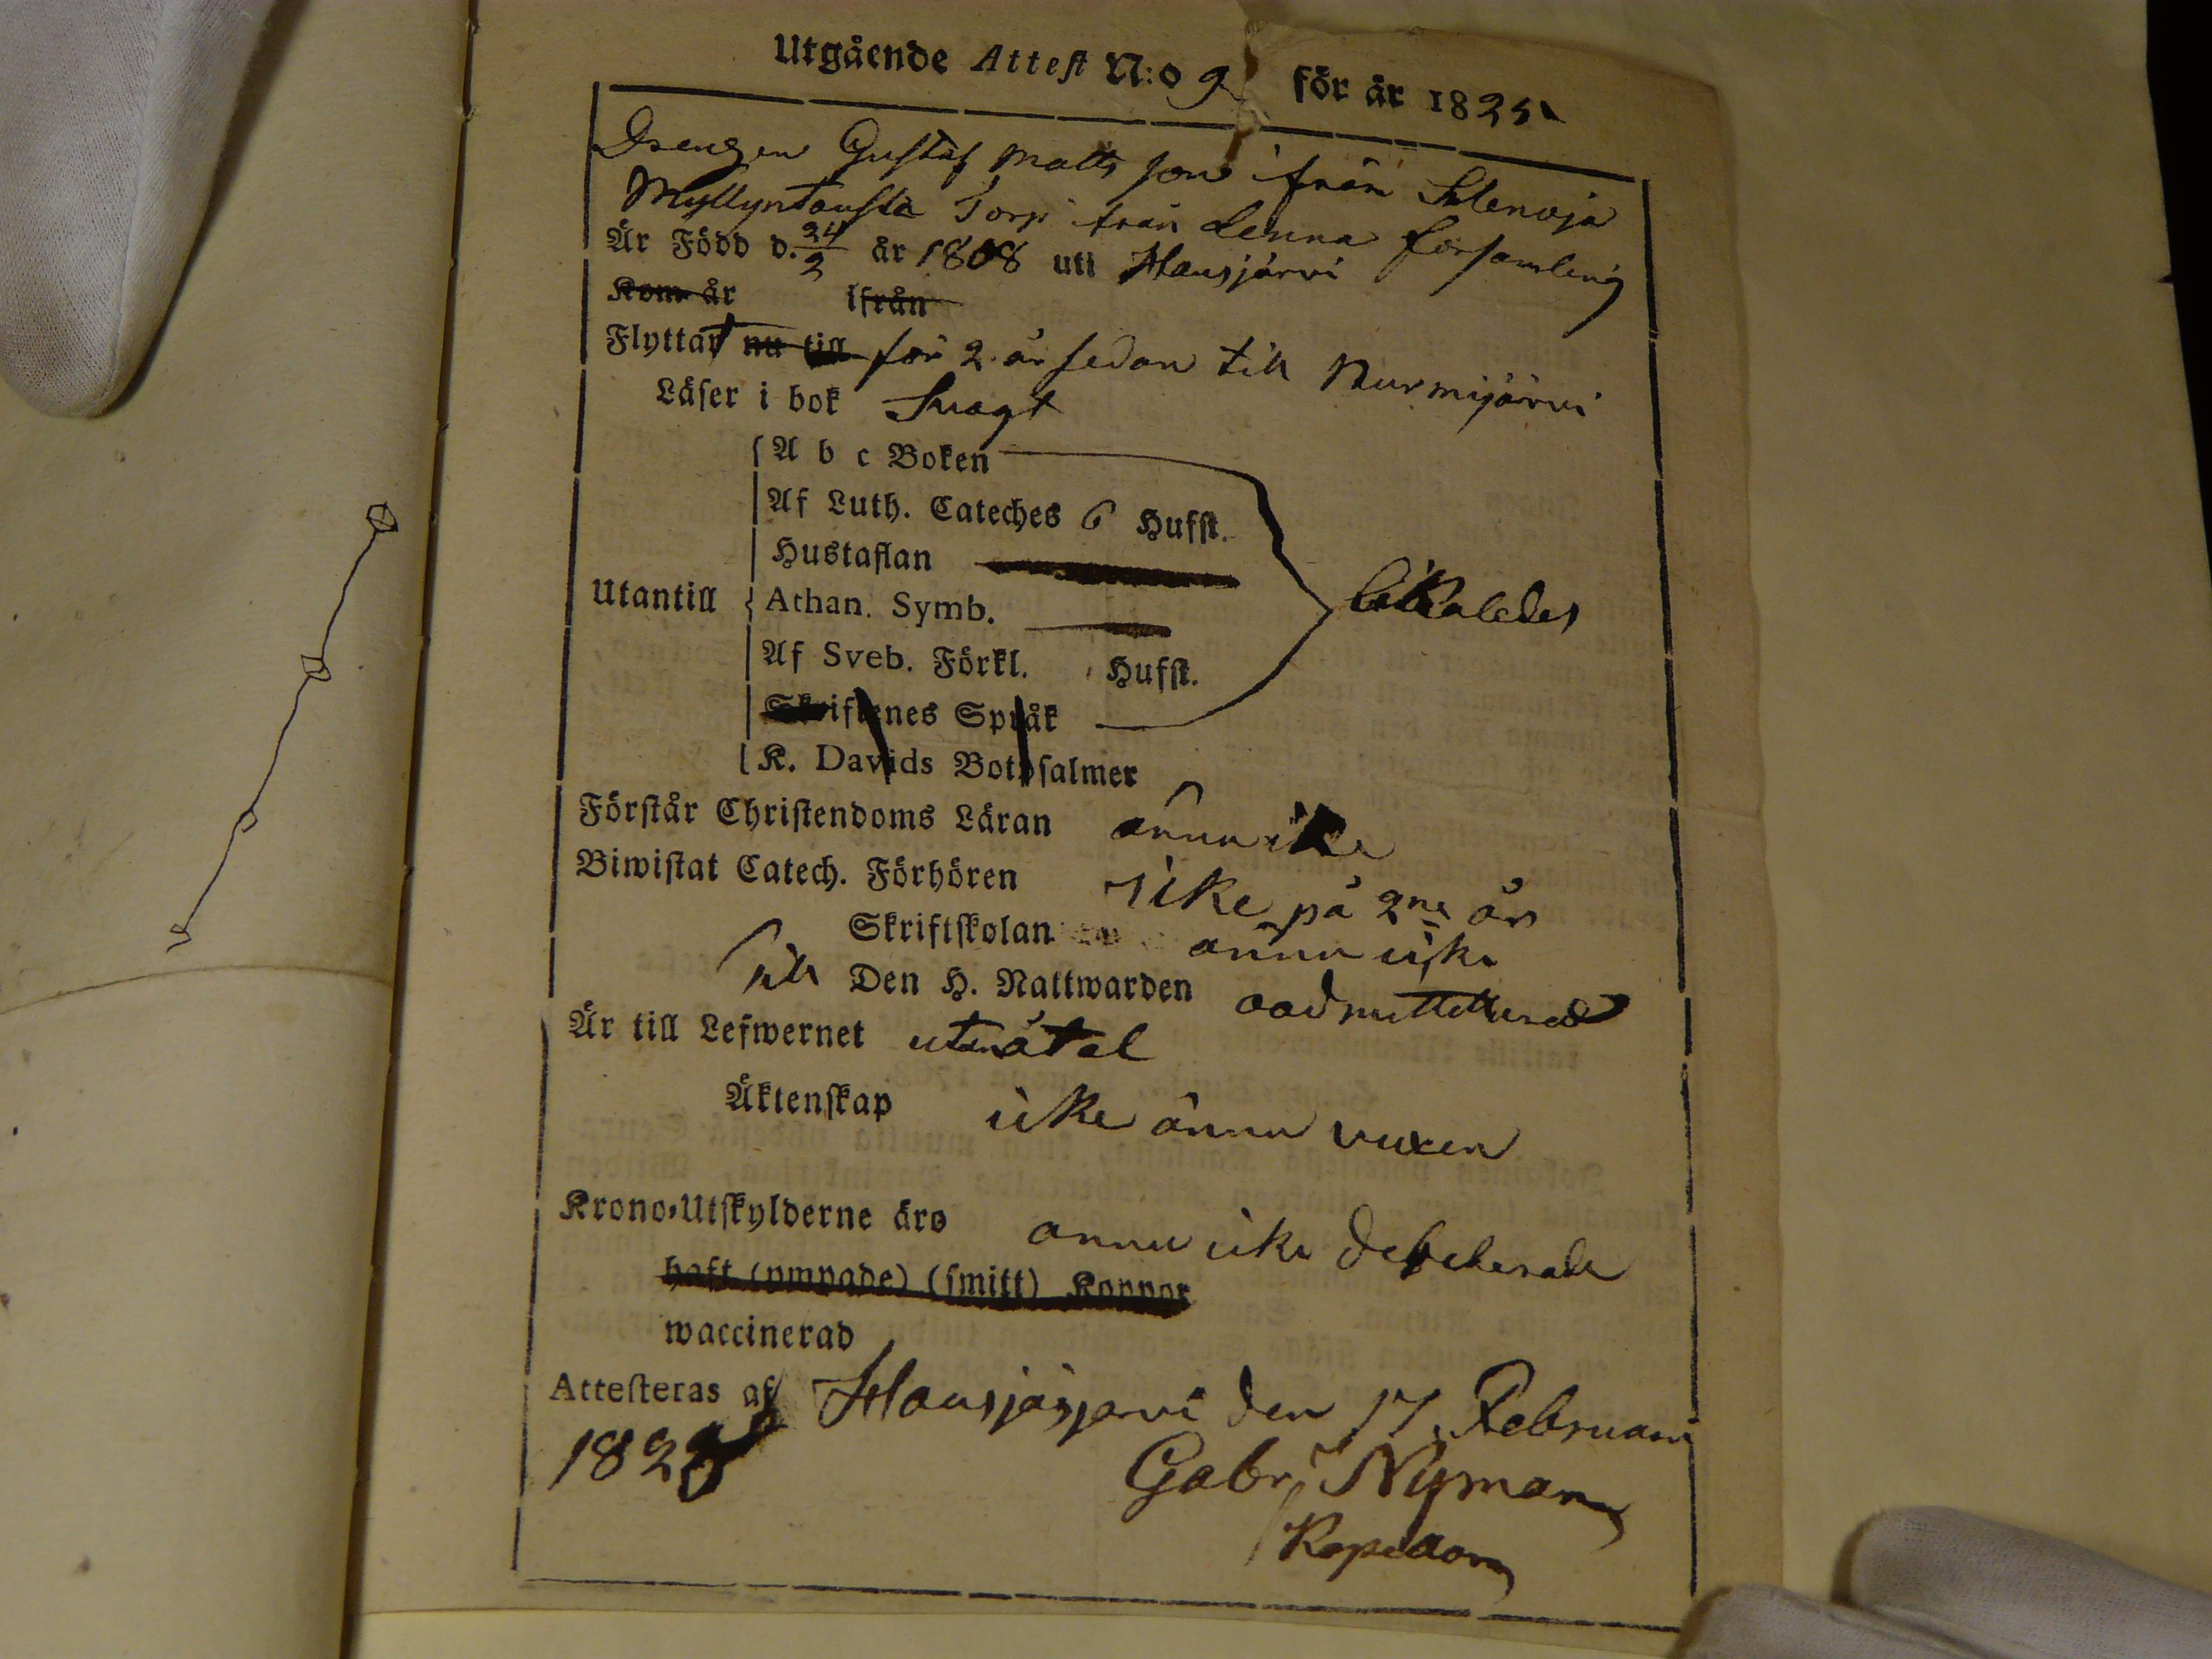 Utgående Attest N:o 9 för år 1825
Drengen Gustaf Matts son ifrån
Myllyntausta Torp från denna församling
Är Född d. 24/2 år 1808 uti Hausjärvi
Kom år ifrån
Flyttat nu till för 2 år sedan till Nurmijärvi
Läser i bok Svagt
A b c Boken
Af Luth. Cateches 6 Hufst.
Hustaflan
Utantill Athan. Symb. likaledes
Af Sveb. Förkl. Hufst.
Skriftenes Språk
K. Davids Botpsalmer
Förstår Christendoms Läran ännu ike
Biwistat Catech. Förhören ike på 2ne år
Skriftskolan ännu icke
till Den H. Nattwarden oadmitterad
Är till Lefwernet utan åtal
Äktenskap icke ännu vuxen
Krono-Utskylderne äro ännu icke debiterade
haft (ympade) (smitt) Koppor
waccinerad
Attesteras af Hausjärjärvi den 17 Februari
1825
Gabr. Nyman
Kapellan